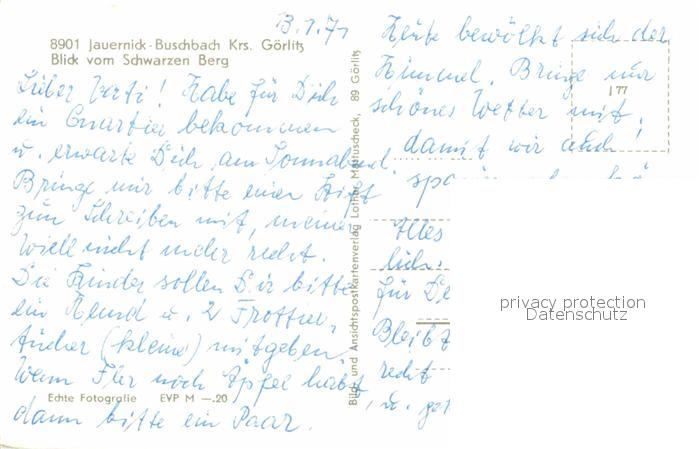 13.7.71
8901 Jauernick-Buschbach Krs. Görlitz
Blick vom Schwarzen Berg
Lieber Vati! Habe für Dich
ein Quartier bekommen
u. erwarte Dich am Sonnabend.
Bringe mir bitte einen Stift
zum Schreiben mit, meiner
will nicht mehr recht.
Die Kinder sollen Dir bitte
ein Hemd u. 2 Frottier-
tücher (kleine) mitgeben.
Wenn Ihr noch Äpfel habt,
Echte Fotografie EVP M —.20
dann bitte ein Paar.
Bild und Ansichtspostkartenverlag Lothar Mattuscheck, 89 Görlitz
Heute bewölkt sich der
Himmel. Bringe nur
I 77
schönes Wetter mit,
damit wir auch
Alles
lich
für
Bleibt
recht
u.
privacy protection
Datenschutz